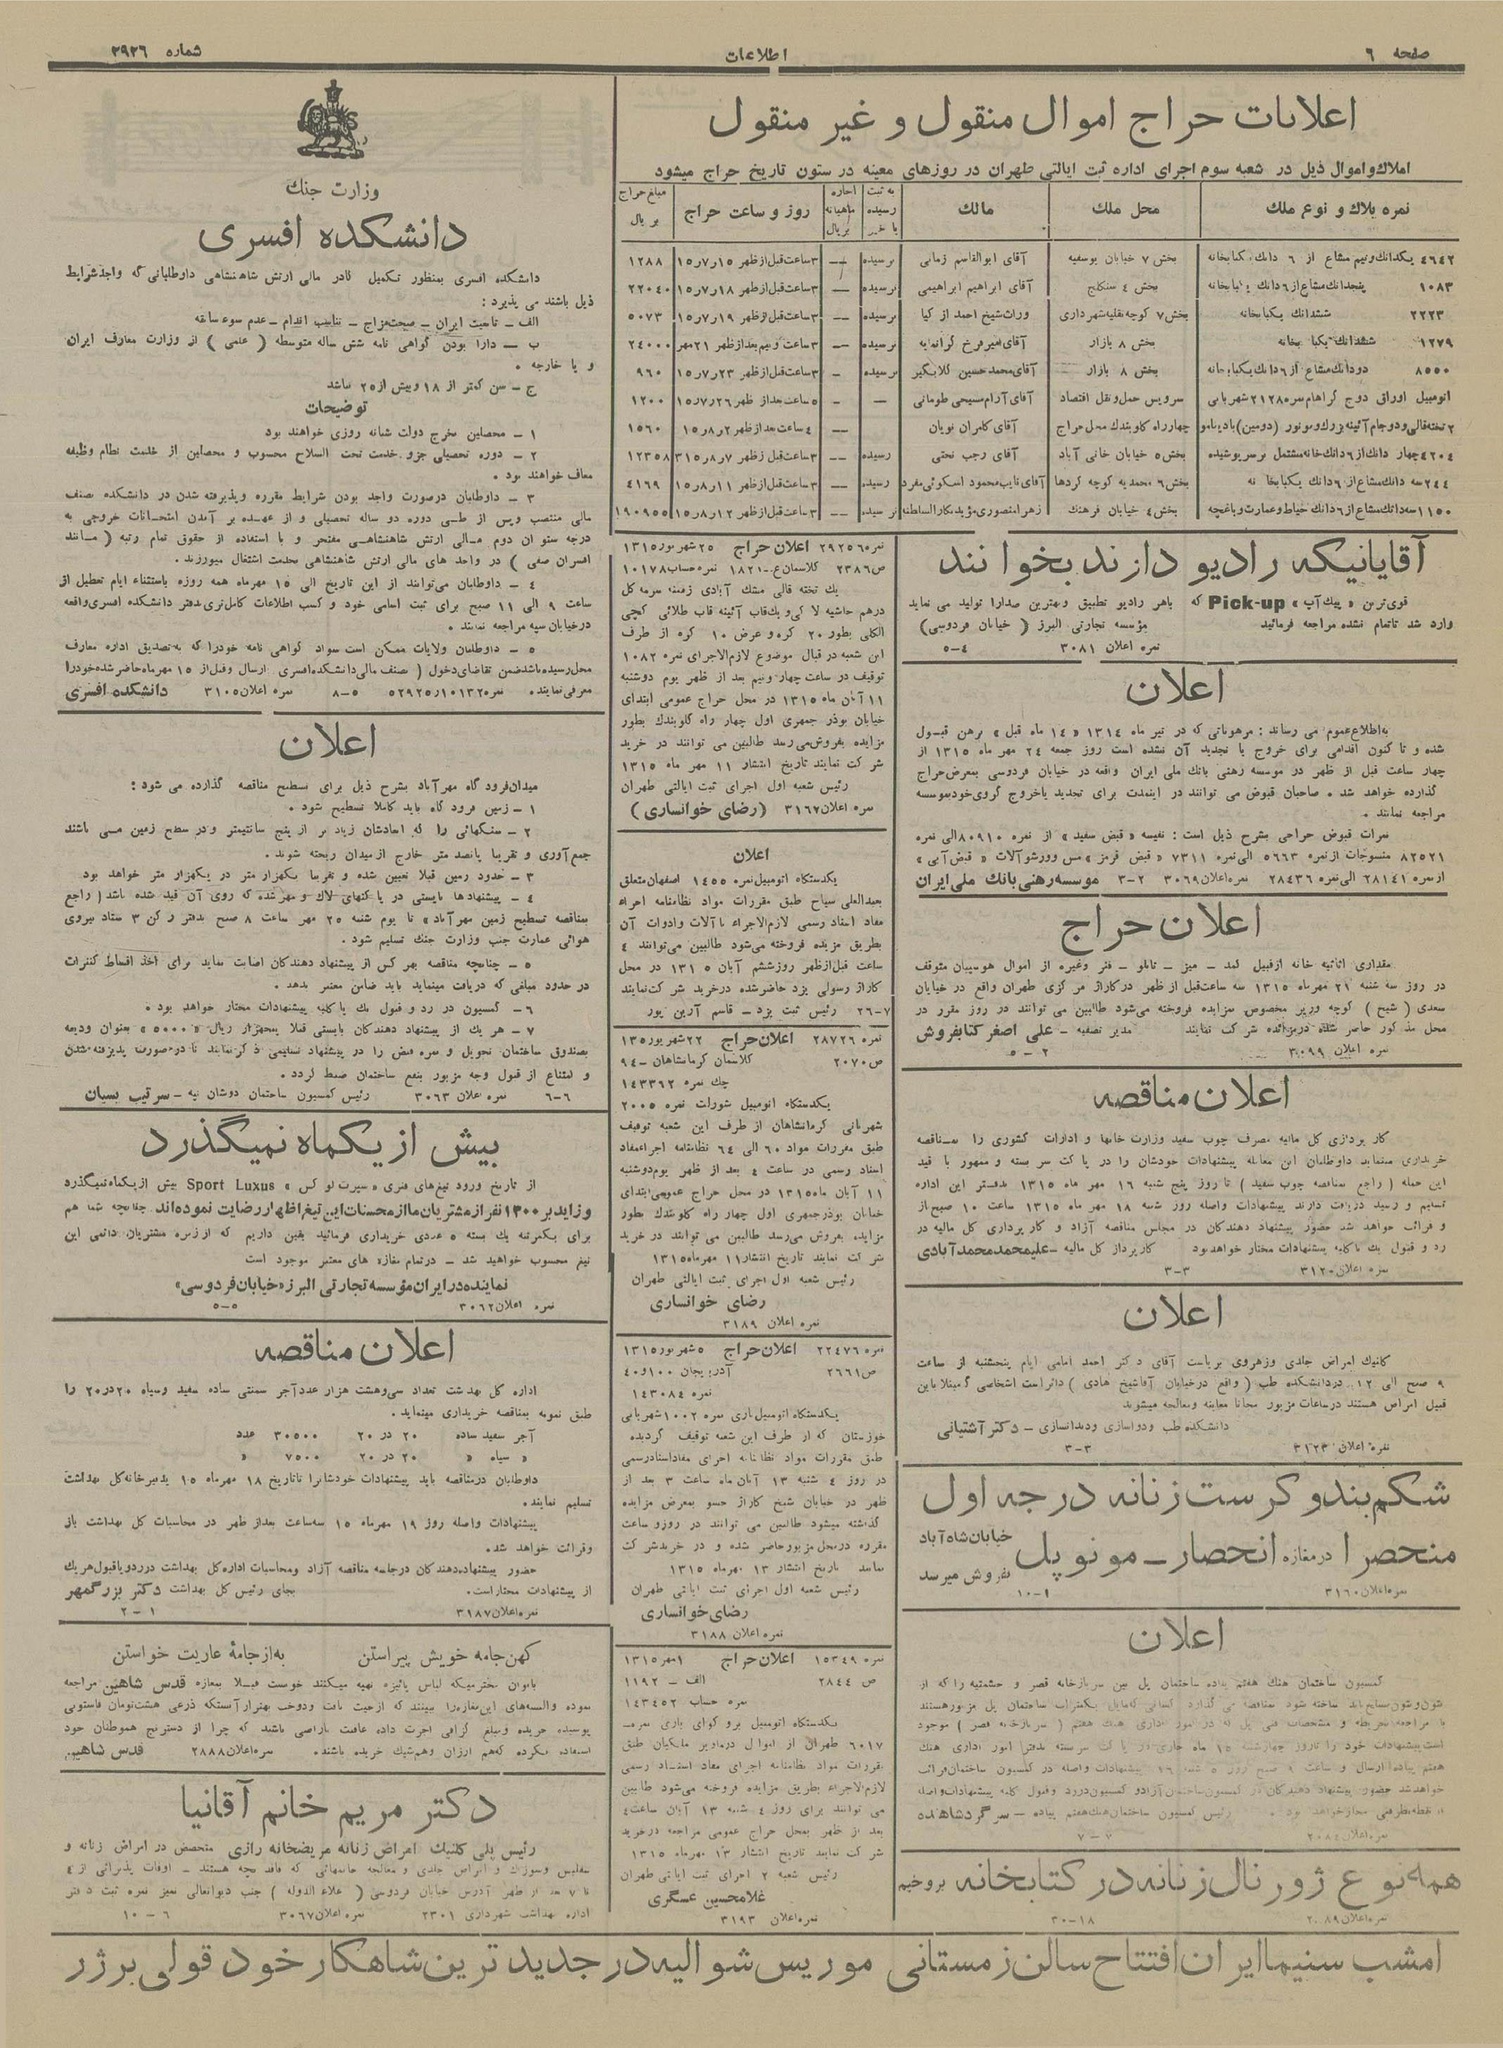 صفحه ۶
اطلاعات
شماره ۲۹۲۶
اعلانات حراج اموال منقول و غیر منقول
املاك واموال ذیل در شعبه سوم اجرای اداره ثبت ایالتی طهران در روزهای معینه در ستون تاریخ حراج میشود
نمره پلاك و نوع ملك
محل ملك
مالك
به ثبت رسیده یا خیر
اجاره ماهیانه بریال
روز و ساعت حراج
مبلغ حراج بریال
۴۶۴۲ یکدانك ونیم مشاع از ۶ دانك یکبابخانه بخش ۷ خیابان یوسفیه آقای ابوالقاسم زمانی نرسیده — ۳ساعت قبل از ظهر ۱۵ر۷ر۱۵ ۱۲۸۸
۱۰۸۳ پنجدانك مشاع از ۶ دانك یکبابخانه بخش ۴ سنگلج آقای ابراهیم ابراهیمی نرسیده — ۳ساعت قبل از ظهر ۱۸ر۷ر۱۵ ۲۲۰۴۰
۲۲۲۳ ششدانك یکبابخانه بخش ۷ کوچه نقلیه شهرداری وراث شیخ احمد از کیا نرسیده — ۳ساعت قبل از ظهر ۱۹ر۷ر۱۵ ۵۰۷۳
۱۲۷۹ ششدانك یکبابخانه بخش ۸ بازار آقای امیر فرخ گرانمایه نرسیده — ۳ساعت و نیم بعد از ظهر ۲۱ مهر ۲۴۰۰۰
۸۵۵۰ دودانك مشاع از ۶ دانك یکبابخانه بخش ۸ بازار آقای محمد حسین گلابگیر نرسیده - ۳ساعت قبل از ظهر ۲۳ر۷ر۱۵ ۹۶۰
اتومبیل اوراق دوج گراهام نمره ۲۱۲۸ شهربانی سرویس حمل ونقل اقتصاد آقای آرام مسیحی طومانی — - ۵ ساعت بعد از ظهر ۲۶ر۷ر۱۵ ۱۲۰۰
چهارراه گلوبندك محل حراج آقای کامران نویان — ۴ ساعت بعد از ظهر ۲ر۸ر۱۵ ۱۵۶۰
۴۲۰۴ چهار دانك از ۶ دانك خانه مشتمل بر سرپوشیده بخش ۵ خیابان خانی آباد آقای رجب نختی رسیده — ۳ساعت قبل از ظهر ۷ر۸ر۳۱۵ ۱۲۳۵۸
۲۴۴ سه دانك مشاع از ۶ دانك یکبابخانه بخش ۶ محمدیه کوچه کردها آقای نایب محمود اسکوئی مفرد رسیده — ۳ساعت قبل از ظهر ۱۱ر۸ر۱۵ ۴۱۶۹
۱۱۵۰ سه دانك مشاع از ۶ دانك حیاط وعمارت و باغچه بخش ۴ خیابان فرهنك نرسیده — ۳ساعت قبل از ظهر ۱۲ر۸ر۱۵ ۱۹۰۹۵۵
آقایانیکه رادیو دارند بخوانند
قوی‌ترین «پیك آپ» Pick-up که باهر رادیو تطبیق وبهترین صدارا تولید می نماید
وارد شد تاتمام نشده مراجعه فرمائید مؤسسه تجارتی البرز ( خیابان فردوسی)
نمره اعلان ۳۰۸۱ ۴-۵
اعلان
به اطلاع عموم می رساند : مرهوناتی که در تیر ماه ۱۳۱۴ «۱۴ ماه قبل» برهن قبول
شده و تا کنون اقدامی برای خروج یا تجدید آن نشده است روز جمعه ۲۴ مهر ماه ۱۳۱۵ از
چهار ساعت قبل از ظهر در موسسه رهنی بانك ملی ایران واقعه در خیابان فردوسی بمعرض حراج
گذارده خواهد شد . صاحبان قبوض می توانند در اینمدت برای تجدید یاخروج گروی خود بموسسه
مراجعه نمایند .
نمرات قبوض حراجی بشرح ذیل است : نفیسه « قبض سفید » از نمره ۸۰۹۱۰ الی نمره
۸۲۵۲۱ منسوجات از نمره ۵۶۶۳ الی نمره ۷۳۱۱ «قبض قرمز » مس وورشو آلات «قبض آبی»
از نمره ۲۸۱۴۱ الی نمره ۲۸۴۳۶ نمره اعلان ۳۰۶۹ ۲-۳ موسسه رهنی بانك ملی ایران
اعلان حراج
مقداری اثاثیه خانه از قبیل کمد – میز – تابلو – فنر وغیره از اموال هوسپیان متوقف
در روز سه شنبه ۲۱ مهرماه ۱۳۱۵ سه ساعت قبل از ظهر در گاراژ مرکزی طهران واقع در خیابان
سعدی ( شیخ ) کوچه وزیر مخصوص بمزایده فروخته می‌شود طالبین می توانند در روز مقرر در
محل مذکور حاضر شده در مزایده شرکت نمایند مدیر تصفیه – علی اصغر کتابفروش
نمره اعلان ۳۰۹۹ ۲-۵
اعلان مناقصه
کار پردازی کل مالیه مصرف چوب سفید وزارت خانها و ادارات کشوری را بمناقصه
خریداری مینماید داوطلبان این معامله پیشنهادات خودشان را در پاکت سر بسته و ممهور با قید
این جمله ( راجع بمناقصه چوب سفید ) تا روز پنج شنبه ۱۶ مهر ماه ۱۳۱۵ بدفتر این اداره
تسلیم و رسید دریافت دارند پیشنهادات واصله روز شنبه ۱۸ مهر ماه ۱۳۱۵ ساعت ۱۰ صبح باز
و قرائت خواهد شد حضور پیشنهاد دهندگان در مجلس مناقصه آزاد و کارپردازی کل مالیه در
رد و قبول یك یا کلیه پیشنهادات مختار خواهد بود کارپرداز کل مالیه – علیمحمد محمدآبادی
نمره اعلان ۳۱۲۰ ۳-۳
اعلان
کلنیك امراض جلدی وزهروی بریاست آقای دکتر احمد امامی ایام پنجشنبه از ساعت
۹ صبح الی ۱۲ در دانشکده طب ( واقع در خیابان آقاشیخ هادی ) دائر است اشخاصی که مبتلا باین
قبیل امراض هستند در ساعات مزبور مجانا معاینه ومعالجه میشوند
دانشکده طب ودواسازی ودندانسازی – دکتر آشتیانی
نمره اعلان ۳۱۲۳ ۳-۳
شکم بند و کرست زنانه درجه اول
منحصرا در مغازه انحصار – مونوپل خیابان شاه آباد بفروش میرسد
نمره اعلان ۳۱۶۰ ۱-۱۰
اعلان
کمسیون ساختمان هنك هفتم پیاده ساختمان پل بین سربازخانه قصر و حشمتیه را که از
هفتم پیاده ارسال و ساعت ۹ صبح روز ۵ شنبه ۱۶ پیشنهادات واصله در کمسیون ساختمان قرائت
خواهد شد حضور پیشنهاد دهندگان در کمسیون ساختمان آزاد و کمسیون در رد و قبول کلیه پیشنهادات واصله
رئیس کمسیون ساختمان هنك هفتم پیاده – سرگرد شاهنده
نمره اعلان ۲۰۸۴ ۷-۷
همه نوع ژورنال زنانه در کتابخانه بروخیم
نمره اعلان ۲۰۸۹ ۱۸-۳۰
نمره ۲۹۲۵۶ اعلان حراج ۲۵ شهریور ۱۳۱۵
ص ۲۳۸۶ کلاسمان ع-۱۸۲۱ نمره حساب ۱۰۱۷۸
یك تخته قالی مشك آبادی زمینه سرمه گل
درهم حاشیه لاکی ویکقاب آئینه قاب طلائی گچی
الکلی بطور ۲۰ گره و عرض ۱۰ گره از طرف
این شعبه در قبال موضوع لازم الاجرای نمره ۱۰۸۲
توقیف در ساعت چهار ونیم بعد از ظهر یوم دوشنبه
۱۱ آبان ماه ۱۳۱۵ در محل حراج عمومی ابتدای
خیابان بوذر جمهری اول چهار راه گلوبندك بطور
مزایده بفروش می‌رسد طالبین می توانند در خرید
شرکت نمایند تاریخ انتشار ۱۱ مهر ماه ۱۳۱۵
رئیس شعبه اول اجرای ثبت ایالتی طهران
نمره اعلان ۳۱۶۷ (رضای خوانساری )
اعلان
یکدستگاه اتومبیل نمره ۱۴۵۵ اصفهان متعلق
بعبدالعلی سیاح طبق مقررات مواد نظامنامه اجراء
مفاد اسناد رسمی لازم الاجراء با آلات وادوات آن
بطریق مزایده فروخته می‌شود طالبین می‌توانند ۴
ساعت قبل از ظهر روز ششم آبان ۱۳۱۵ در محل
گاراژ رسولی یزد حاضر شده در خرید شرکت نمایند
۷-۲۶ رئیس ثبت یزد – قاسم آرین پور
نمره ۲۸۷۲۶ اعلان حراج ۲۲ شهریور ۱۳۵
ص ۲۰۷۰ کلاسمان کرمانشاهان – ۹۴
چك نمره ۱۴۳۳۶۲
یکدستگاه اتومبیل شورلت نمره ۲۰۰۵
شهربانی کرمانشاهان از طرف این شعبه توقیف
طبق مقررات مواد ۶۰ الی ۶۴ نظامنامه اجراء مفاد
اسناد رسمی در ساعت ۴ بعد از ظهر یوم دوشنبه
۱۱ آبان ماه ۱۳۱۵ در محل حراج عمومی ابتدای
خیابان بوذرجمهری اول چهار راه گلوبندك بطور
مزایده بفروش می‌رسد طالبین می توانند در خرید
شرکت نمایند تاریخ انتشار ۱۱ مهرماه ۱۳۱۵
رئیس شعبه اول اجرای ثبت ایالتی طهران
رضای خوانساری
نمره اعلان ۳۱۸۹
نمره ۲۲۴۷۶ اعلان حراج ۵ شهریور ۱۳۱۵
ص ۲۶۶۱ آذربیجان ۱۰۰ و ۴۰
نمره ۱۴۳۰۸۴
یکدستگاه اتومبیل باری نمره ۱۰۰۲ شهربانی
خوزستان که از طرف این شعبه توقیف گردیده
طبق مقررات مواد نظامنامه اجرای مفاد اسناد رسمی
در روز ۴ شنبه ۱۳ آبان ماه ساعت ۳ بعد از
ظهر در خیابان شیخ گاراژ حسو بمعرض مزایده
گذاشته میشود طالبین می توانند در روز و ساعت
مقرره در محل مزبور حاضر شده و در خرید شرکت
نمایند تاریخ انتشار ۱۳ مهرماه ۱۳۱۵
رئیس شعبه اول اجرای ثبت ایالتی طهران
رضای خوانساری
نمره اعلان ۳۱۸۸
نمره ۱۵۳۴۹ اعلان حراج ۱ مهر ۱۳۱۵
ص ۲۸۴۴ الف – ۱۱۹۲
نمره حساب ۱۴۳۴۵۲
۶۰۱۷ طهران از اموال درمادیر ملیکیان طبق
مقررات مواد نظامنامه اجرای مفاد اسناد رسمی
لازم الاجراء بطریق مزایده فروخته می‌شود طالبین
می توانند برای روز ۴ شنبه ۱۳ آبان ساعت ۴
بعد از ظهر بمحل حراج عمومی مراجعه در خرید
شرکت نمایند تاریخ انتشار ۱۳ مهرماه ۱۳۱۵
رئیس شعبه ۲ اجرای ثبت ایالتی طهران
غلامحسین عسگری
نمره اعلان ۳۱۹۳
وزارت جنك
دانشکده افسری
دانشکده افسری بمنظور تکمیل کادر مالی ارتش شاهنشاهی داوطلبانی که واجد شرایط
ذیل باشند می پذیرد :
الف – تابعیت ایران – صحت مزاج – تناسب اندام – عدم سوء سابقه
ب – دارا بودن گواهی نامه شش ساله متوسطه ( علمی ) از وزارت معارف ایران
و یا خارجه .
ج – سن کمتر از ۱۸ وبیش از ۲۵ نباشد
توضیحات
۱ – محصلین بخرج دولت شبانه روزی خواهند بود
۲ – دوره تحصیلی جزو خدمت تحت السلاح محسوب و محصلین از خدمت نظام وظیفه
معاف خواهند بود .
۳ – داوطلبان درصورت واجد بودن شرایط مقرره وپذیرفته شدن در دانشکده بصنف
مالی منتصب وپس از طی دوره دو ساله تحصیلی و از عهده بر آمدن امتحانات خروجی به
درجه ستوان دوم مالی ارتش شاهنشاهی مفتخر و با استفاده از حقوق تمام رتبه ( مانند
افسران صفی ) در واحد های مالی ارتش شاهنشاهی بخدمت اشتغال میورزند .
۴ – داوطلبان می‌توانند از این تاریخ الی ۱۵ مهرماه همه روزه باستثناء ایام تعطیل از
ساعت ۹ الی ۱۱ صبح برای ثبت اسامی خود و کسب اطلاعات کامل‌تری بدفتر دانشکده افسری واقعه
در خیابان سپه مراجعه نمایند .
۵ – داوطلبان ولایات ممکن است سواد گواهی نامه خودرا که بتصدیق اداره معارف
محل رسیده باشد ضمن تقاضای دخول ( صنف مالی دانشکده افسری ارسال وقبل از ۱۵ مهرماه حاضر شده خودرا
معرفی نمایند . نمره ۵۲۹۲۵ر۱۰۱۳۲ ۵-۸ نمره اعلان ۳۱۰۵ دانشکده افسری
اعلان
میدان فرودگاه مهرآباد بشرح ذیل برای تسطیح بمناقصه گذارده می شود :
۱ – زمین فرودگاه باید کاملا تسطیح شود .
۲ – سنگهائی را که ابعادشان زیاد تر از پنج سانتیمتر ودر سطح زمین می باشند
جمع آوری و تقریبا پانصد متر خارج از میدان ریخته شوند .
۳ – حدود زمین قبلا تعیین شده و تقریبا یکهزار متر در یکهزار متر خواهد بود
۴ – پیشنهادها بایستی در پاکتهای لاك و مهر شده که روی آن قید شده باشد ( راجع
بمناقصه تسطیح زمین مهرآباد » تا یوم شنبه ۲۵ مهر ساعت ۸ صبح بدفتر رکن ۳ ستاد نیروی
هوائی عمارت جنب وزارت جنك تسلیم شود .
۵ – چنانچه مناقصه بهر کس از پیشنهاد دهندگان اصابت نماید برای اخذ اقساط کنترات
در حدود مبلغی که دریافت مینماید باید ضامن معتبر بدهد .
۶ – کمسیون در رد و قبول یك یا کلیه پیشنهادات مختار خواهد بود .
۷ – هر یك از پیشنهاد دهندگان بایستی قبلا پنجهزار ریال «۵۰۰۰» بعنوان ودیعه
بصندوق ساختمان تحویل و نمره قبض را در پیشنهاد تسلیمی ذکر نمایند تا درصورت پذیرفته شدن
و امتناع از قبول وجه مزبور بنفع ساختمان ضبط گردد .
۶-۶ نمره اعلان ۳۰۶۳ رئیس کمسیون ساختمان دوشان تپه – سرتیپ بسیان
بیش از یکماه نمیگذرد
از تاریخ ورود تیغ‌های فنری « سپرت لوکس » Sport Luxus بیش از یکماه نمیگذرد
وزاید بر ۱۳۰۰ نفر از مشتریان ما از محسنات این تیغ اظهار رضایت نموده اند. چنانچه شما هم
برای یکمرتبه یك بسته ۵ عددی خریداری فرمائید یقین داریم که از زمره مشتریان دائمی این
تیغ محسوب خواهید شد – در تمام مغازه های معتبر موجود است
نماینده در ایران مؤسسه تجارتی البرز «خیابان فردوسی»
نمره اعلان ۳۰۶۲ ۵-۵
اعلان مناقصه
اداره کل بهداشت تعداد سی وهشت هزار عدد آجر سمنتی ساده سفید وسیاه ۲۰ در ۲۰ را
طبق نمونه بمناقصه خریداری مینماید.
آجر سفید ساده ۲۰ در ۲۰ ۳۰۵۰۰ عدد
« سیاه « ۲۰ در ۲۰ ۷۵۰۰ «
داوطلبان در مناقصه باید پیشنهادات خودشانرا تا تاریخ ۱۸ مهرماه ۱۵ بدبیرخانه کل بهداشت
تسلیم نمایند.
پیشنهادات واصله روز ۱۹ مهرماه ۱۵ سه ساعت بعد از ظهر در محاسبات کل بهداشت باز
وقرائت خواهد شد.
حضور پیشنهاد دهندگان در جلسه مناقصه آزاد ومحاسبات اداره کل بهداشت در رد و یا قبول هریك
از پیشنهادات مختار است. بجای رئیس کل بهداشت دکتر بزرگمهر
نمره اعلان ۳۱۸۷ ۱-۲
کهن جامه خویش پیراستن به از جامهٔ عاریت خواستن
بانوان محترمیکه لباس پائیزه تهیه میکنند خوبست قبلا بمغازه قدس شاهین مراجعه
نموده والبسه‌های این مغازه را ببینند که از حیث بافت ودوخت بهتر از آنستکه ذرعی هشت تومان فاستونی
پوسیده خریده ومبلغ گزافی اجرت داده عاقبت ناراضی باشند که چرا از دسترنج هموطنان خود
استفاده نکرده که هم ارزان وهم شیك خریده باشند. نمره اعلان ۲۸۸۸ قدس شاهین
دکتر مریم خانم آقانیا
رئیس پلی کلنیك امراض زنانه مریضخانه رازی متخصص در امراض زنانه و
سفلیس وسوزاك و امراض جلدی و معالجه خانمهائی که فاقد بچه هستند – اوقات پذیرائی از ۴
تا ۷ بعد از ظهر آدرس خیابان فردوسی ( علاءالدوله ) جنب دیوانعالی تمیز نمره ثبت دفتر
اداره بهداشت شهرداری ۲۳۰۱ نمره اعلان ۳۰۶۷ ۶-۱۰
امشب سنیما ایران افتتاح سالن زمستانی موریس شوالیه در جدید ترین شاهکار خود فولی برژر